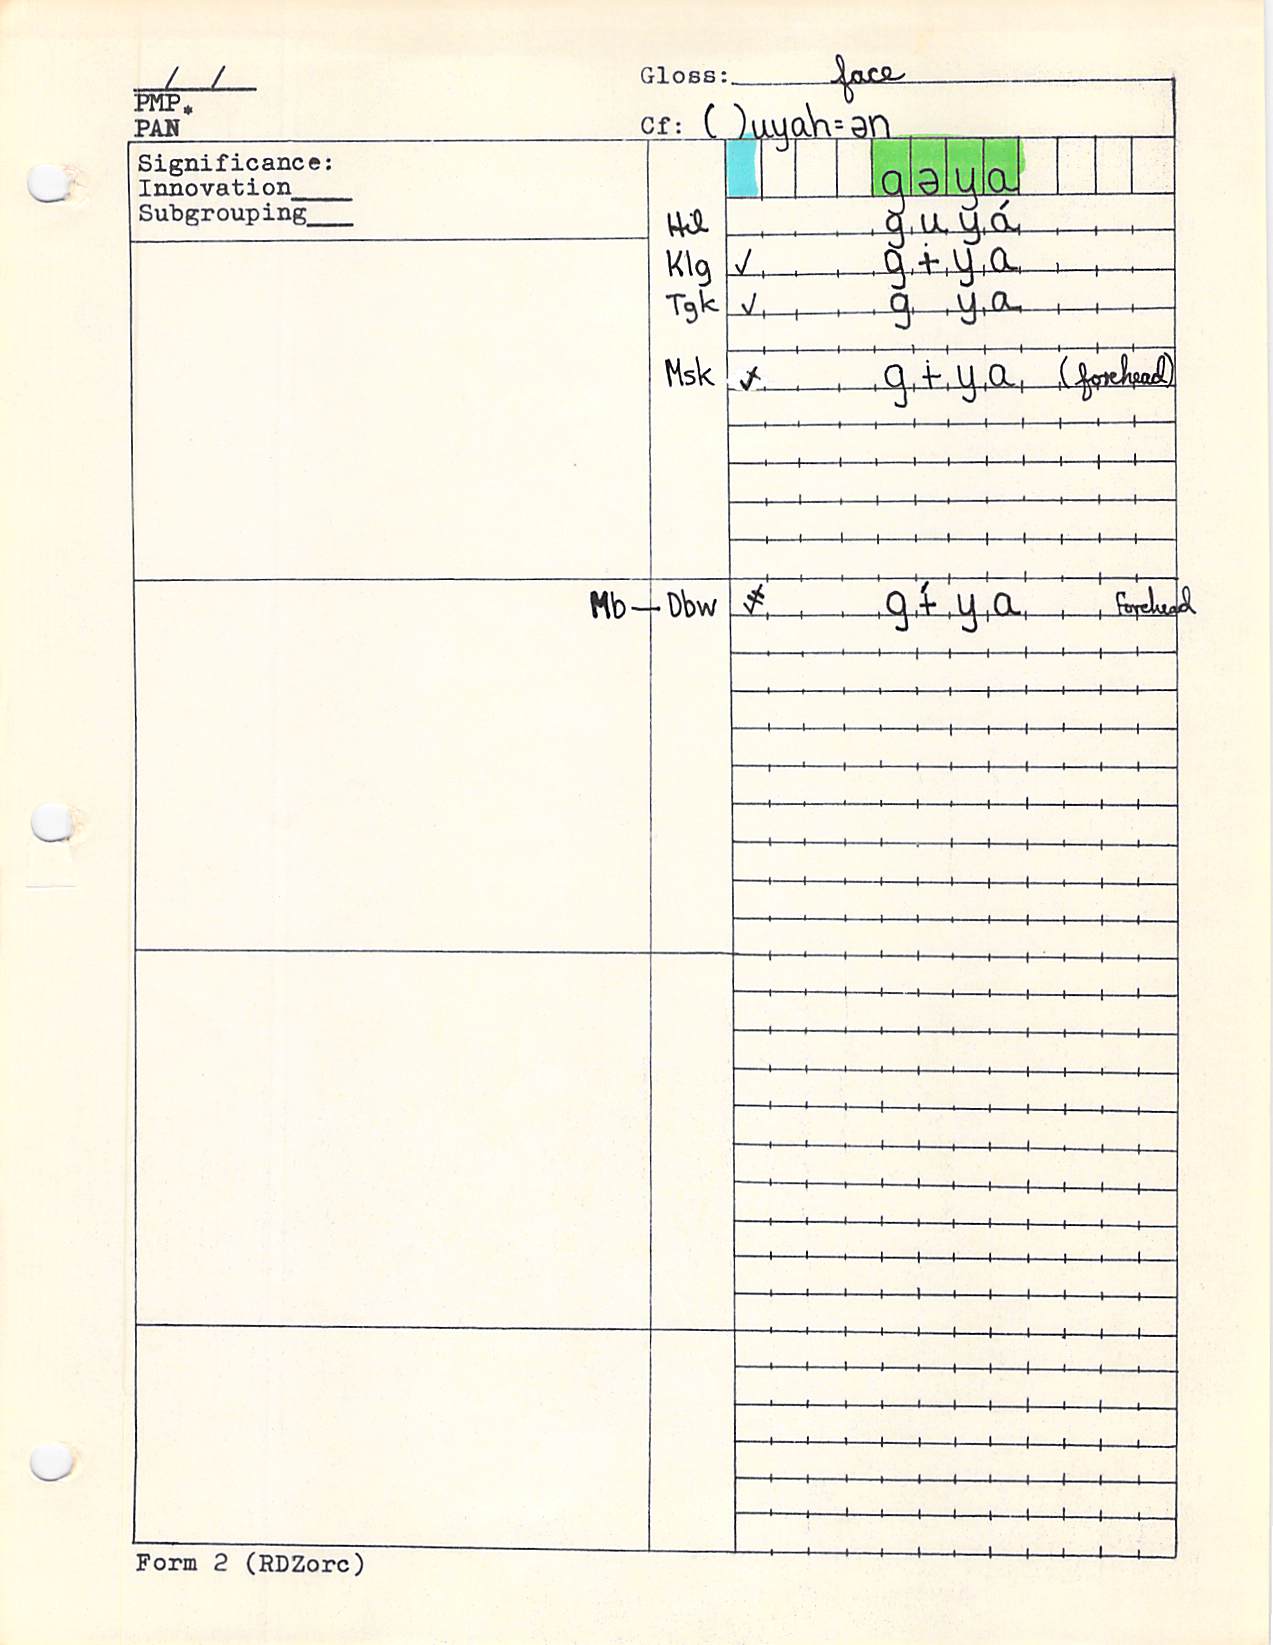 / / Gloss: face
PMP*
PAN Cf: ( )uyah=ən
Significance: gəya
Innovation____
Subgrouping___
Hil guyá
Klg ✓ gɨya
Tgk ✓ g ya
Msk gɨya (forehead)
Mb — Dbw gɨ́ya forehead
Form 2 (RDZorc)